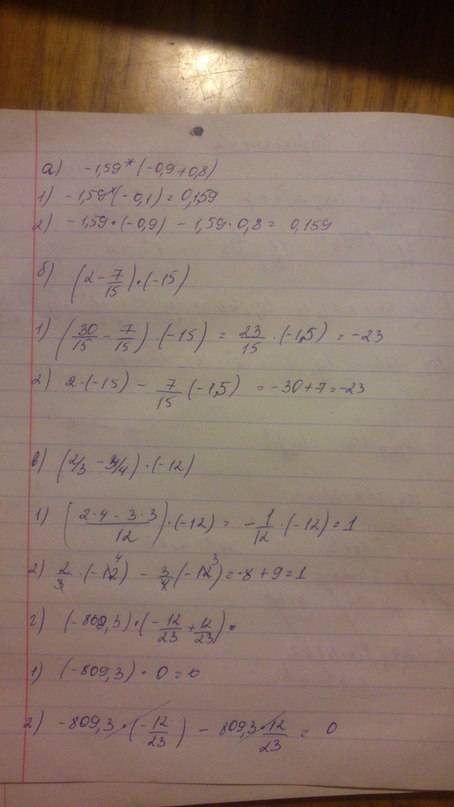 а) -1,59*(-0,9+0,8)
1) -1,59*(-0,1)=0,159
2) -1,59·(-0,9) - 1,59·0,8 = 0,159
б) (2-7/15)·(-15)
1) (30/15 - 7/15)·(-15) = 23/15·(-1,5) = -23
2) 2·(-15) - 7/15(-1,5) = -30+7=-23
в) (2/3-3/4)·(-12)
1) (2·4-3·3/12)·(-12) = -1/12·(-12)=1
2) 2/3·(-12⁴) - 3/4(-12³)=-8+9=1
г) (-809,3)·(-12/23+12/23)·
1) (-809,3)·0=0
2) -809,3·(-12/23) - 809,3·12/23 = 0